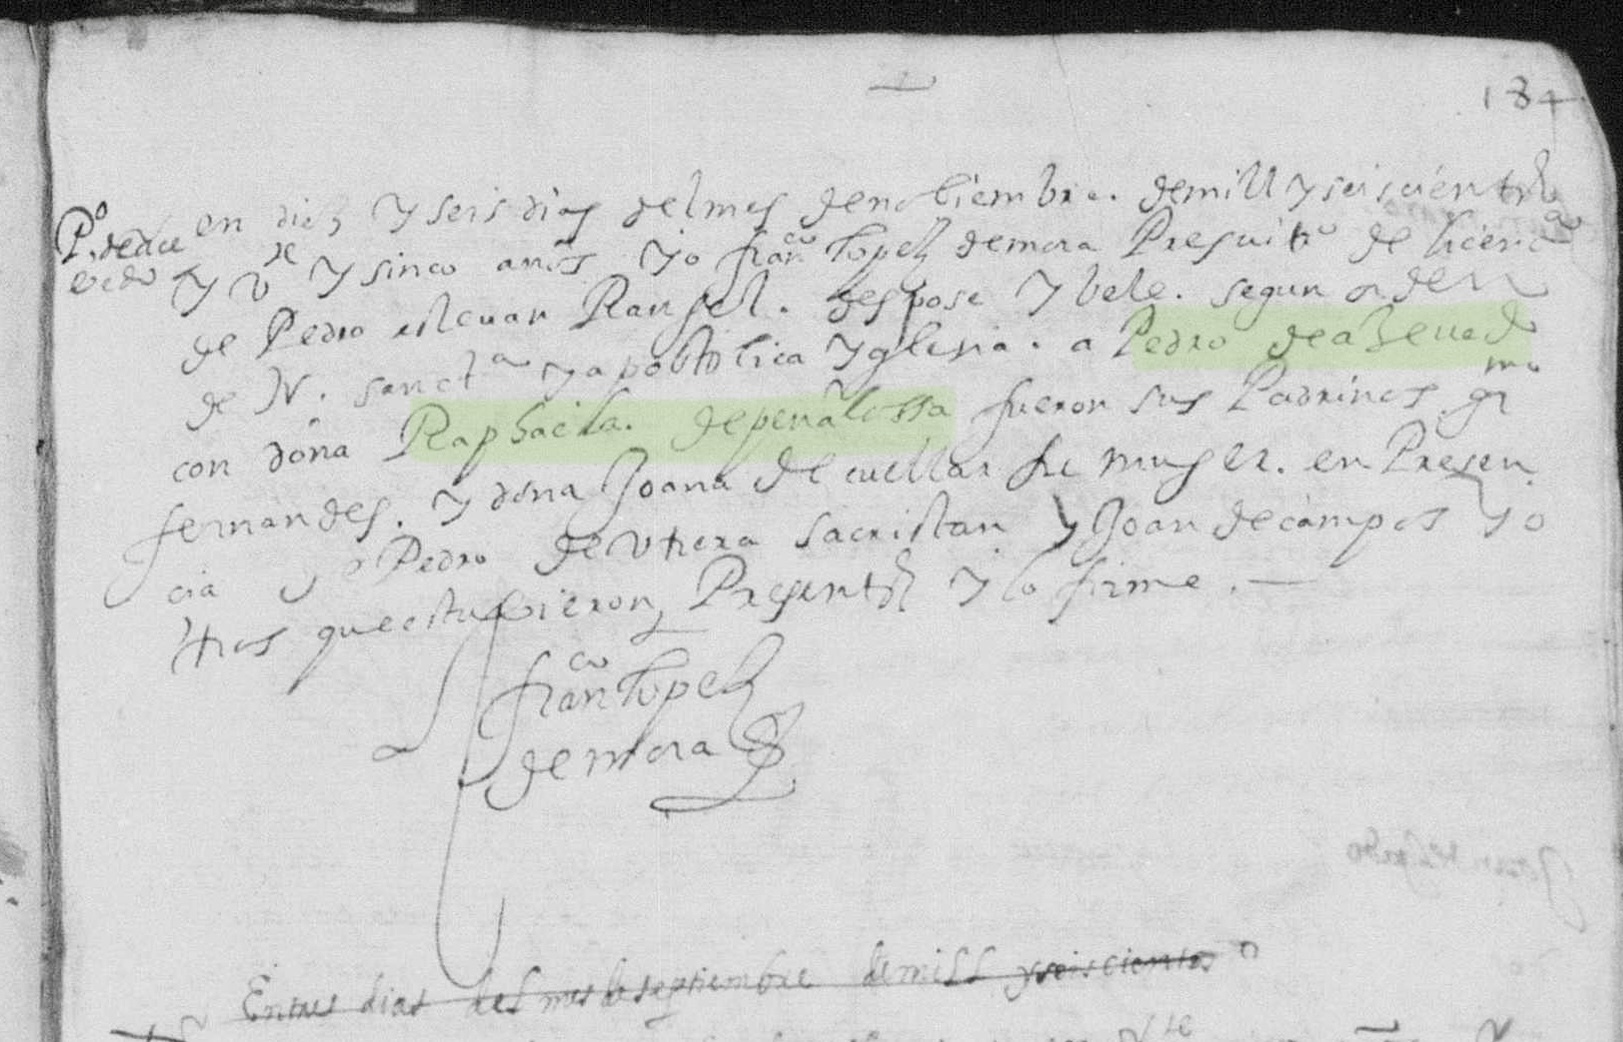 184
P.º de Aze
vedo
en diez y seis dias del mes de nobiembre. de mill y seiscientos
y v x y sinco años yo fran.co lopez de mora Presuitº de licencia
de Pedro esteuan Rangel. despose y vele. segun orden
de N. sancta y apostolica yglesia. a Pedro de aseuedo
con doña Raphaela. de peñalossa fueron sus Padrinos grmo
fernandes. y doña Joana de cuellar su muger. en Presen
cia de Pedro de Utrera sacristan y Joan de campos y o
tros que estubieron Presentes y lo firme.
fran.co lopez
de mora
En tres dias del mes de septiembre de mill y seiscientos